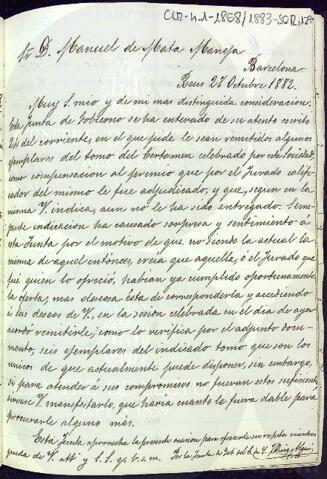 Sr. D. Manuel de Mata Maneja
Barcelona
Reus 27 Octubre 1882.
Muy S. mio y de mi mas distinguida consideracion:
Esta Junta de Gobierno se ha enterado de su atento escrito
del corriente, en el que pide le sean remitidos algunos
ejemplares del tomo del Certamen celebrado por esta Sociedad,
como compensacion al premio que por el Jurado califi-
cador del mismo le fué adjudicado, y que, segun en la
misma V. indica, aun no le ha sido entregado. Seme-
jante indicacion ha causado sorpresa y sentimiento á
esta Junta por el motivo de que, no siendo la actual la
misma de aquel entónces, creia que aquella, ó el Jurado que
fué quien lo ofreció, habian ya cumplido oportunamente
la oferta, mas deseosa ésta de corresponderla y accediendo
á los deseos de V., en la sesion celebrada en el dia de ayer
acordó remitirle, como lo verifica por el adjunto docu-
mento, seis ejemplares del indicado tomo que son los
únicos de que actualmente puede disponer, sin embargo,
si para atender á sus compromisos no fueran estos suficientes
sirvase V. manifestarlo, que haria cuanto le fuera dable para
procurarle alguno mas.
Esta Junta aprovecha la presente ocasion para ofrecerle sus respetos
queda de V. att. y S. S. q. b. s. m. Por la Junta de Gob.